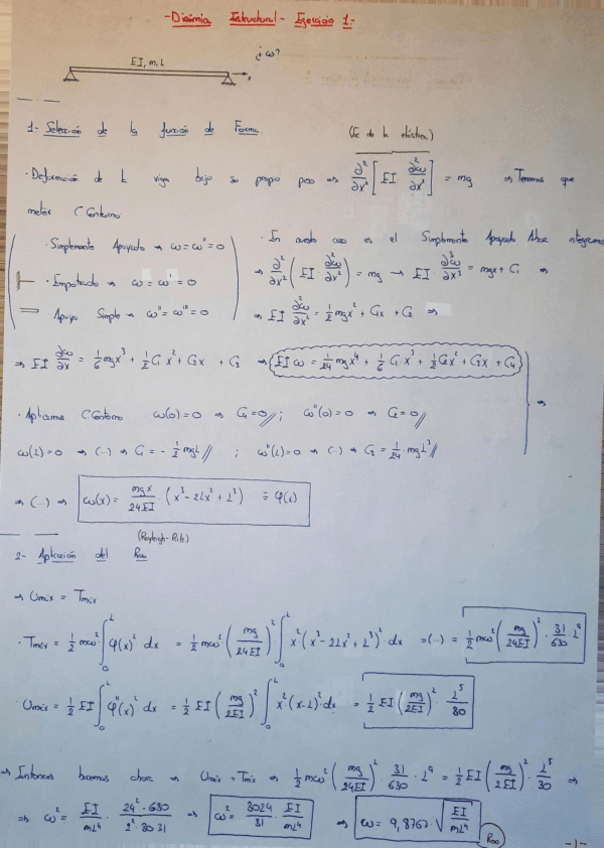 -Dinámica Estructural - Ejercicio 1-
¿ω?
EI, m, L
x
1- Selección de la función de Forma.
(Ec de la elástica)
· Deformación de la viga bajo su propio peso ⇒ ∂²/∂x² [EI ∂²ω/∂x²] = mg ⇒ Tenemos que
meter C Contorno
· Simplemente Apoyado → ω = ω'' = 0
· Empotrado → ω = ω' = 0
· Apoyo Simple → ω'' = ω''' = 0
· En nuestro caso es el Simplemente Apoyado Ahora integramos
⇒ ∂²/∂x² (EI · ∂²ω/∂x²) = mg → EI ∂³ω/∂x³ = mgx + C₁ ⇒
⇒ EI ∂²ω/∂x² = 1/2 mgx² + C₁x + C₂ ⇒
⇒ EI ∂ω/∂x = 1/6 mgx³ + 1/2 C₁x² + C₂x + C₃ ⇒ EI ω = 1/24 mgx⁴ + 1/6 C₁x³ + 1/2 C₂x² + C₃x + C₄ ⇒
· Aplicamos C Contorno ω(0) = 0 ⇒ C₄ = 0 // ; ω''(0) = 0 ⇒ C₂ = 0 //
ω(L) = 0 ⇒ (...) ⇒ C₁ = - 1/2 mgL // ; ω''(L) = 0 ⇒ (...) ⇒ C₃ = 1/24 · mgL³ //
⇒ (...) ⇒ ω(x) = mgx/24EI · (x³ - 2Lx² + L³) ≡ φ(x)
(Rayleigh-Ritz)
2- Aplicación del Roo
⇒ Umáx = Tmáx
· Tmáx = 1/2 mω² ∫₀ᴸ φ(x)² dx = 1/2 mω² (mg/24EI)² ∫₀ᴸ x² (x³ - 2Lx² + L³)² · dx = (...) = 1/2 mω² (mg/24EI)² · 31/630 · L⁹
· Umáx = 1/2 EI ∫₀ᴸ φ''(x)² dx = 1/2 EI (mg/2EI)² ∫₀ᴸ x² (x-L)² dx = 1/2 EI (mg/2EI)² L⁵/30
⇒ Entonces hacemos ahora ⇒ Umáx = Tmáx ⇒ 1/2 mω² (mg/24EI)² · 31/630 · L⁹ = 1/2 EI (mg/2EI)² · L⁵/30 ⇒
⇒ ω² = EI/mL⁴ · 24² · 630 / 2² · 30 · 31 ⇒ ω² = 3024/31 · EI/mL⁴ ⇒ ω = 9,8767 √(EI/mL⁴)
Roo
-1-